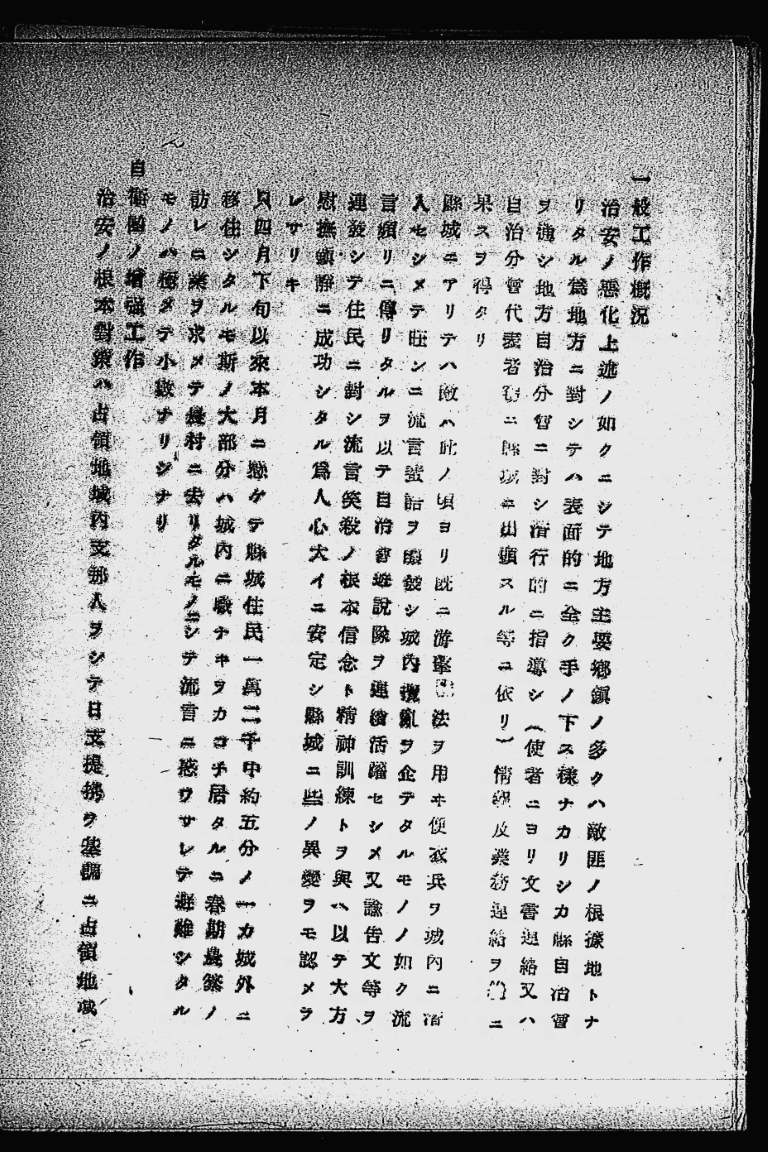 一般工作概況
治安ノ惡化上述ノ如クニシテ地方主要鄕鎭ノ多クハ敵匪ノ根據地トナ
リタル爲地方ニ對シテハ表面的ニ全ク手ノ下ス樣ナカリシカ縣自治會
ヲ通シ地方自治分會ニ對シ潛行的ニ指導シ(使者ニヨリ文書連絡又ハ
自治分會代表者ニ縣城ニ出頭スル等ニ依リ)情報及業務連絡ヲ ニ
果スヲ得タリ
縣城ニアリテハ敵ハ此ノ頃ヨリ既ニ游擊 法ヲ用ヰ便衣兵ヲ城內ニ潛
入セシメテ旺ンニ流言蜚語ヲ釀發シ城內攪亂ヲ企テタルモノノ如ク流
言頻リニ傳リタルヲ以テ自治會遊說隊ヲ連續活躍セシメ又諭告文等ヲ
連發シテ住民ニ對シ流言笑殺ノ根本信念ト精神訓練トヲ與ヘ以テ大方
慰撫鎭靜ニ成功シタル爲人心大イニ安定シ縣城ニ些ノ異變ヲモ認メラ
レサリキ
只四月下旬以來本月ニ懸ケテ縣城住民一萬二千中約五分ノ一カ城外ニ
移住シタルモ斯ノ大部分ハ城內ニ職ナキヲカコチ居タルニ春期農繁ノ
訪レニ業ヲ求メテ農村ニ去リタルモノニシテ流言ニ惑ワサレテ避難シタル
モノハ極メテ小數ナリシナリ
自衞團ノ增強工作
治安ノ根本對策ハ占領地域內支那人ヲシテ日支提携ヲ基調ニ占領地域